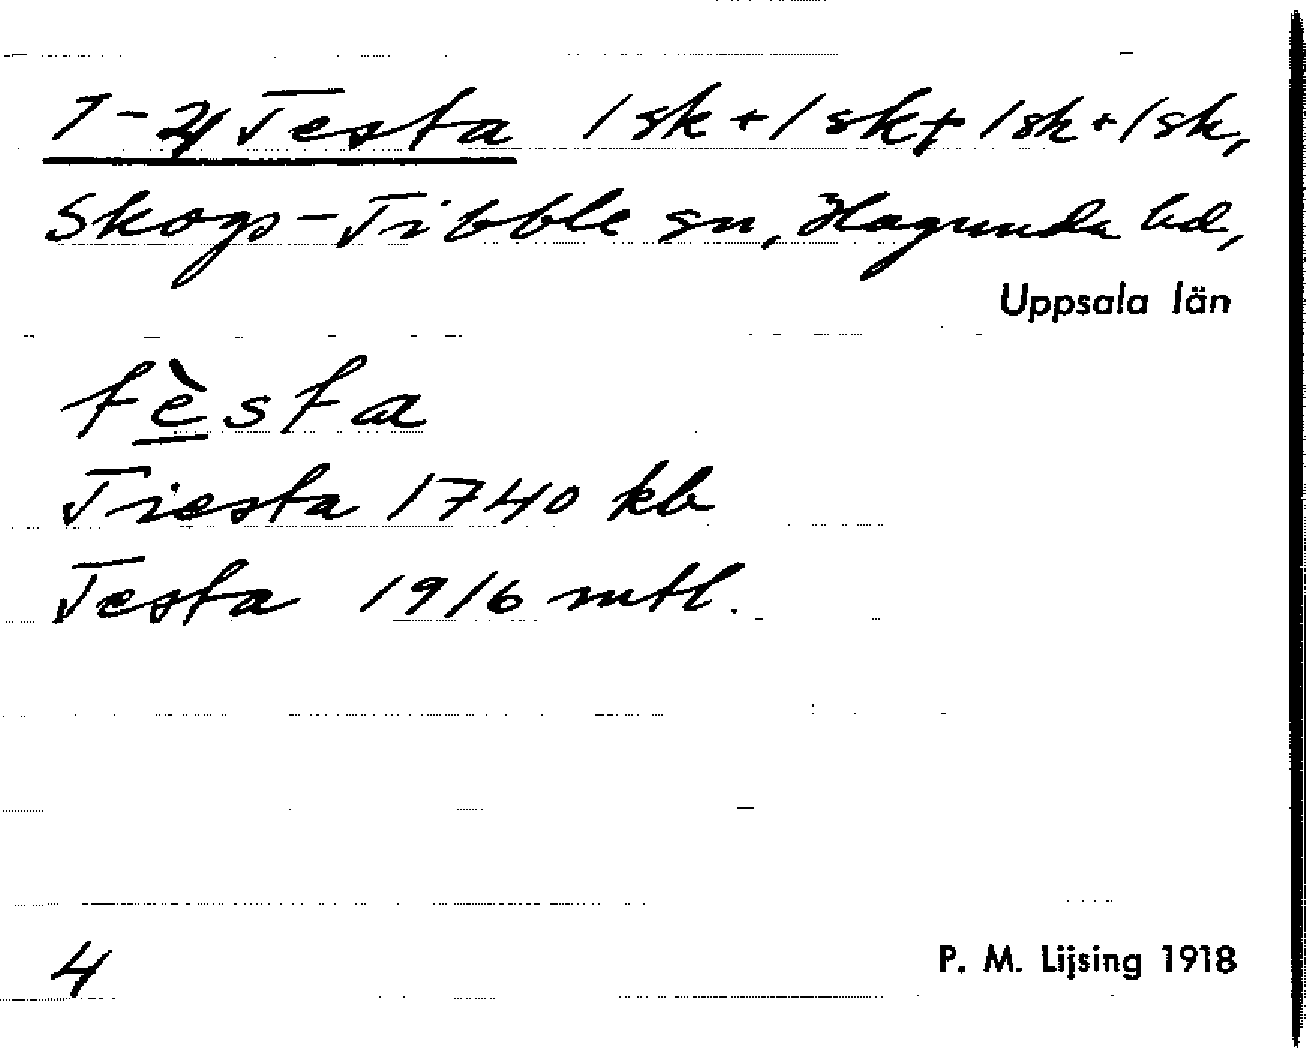 1-4 Testa 1 sk + 1 sk + 1 sk + 1 sk,
Skogs-Tibble sn, Hagunda hd,
Uppsala län
tèsta
Tiesta 1740 kb
Testa 1916 mtl.
4
P. M. Lijsing 1918